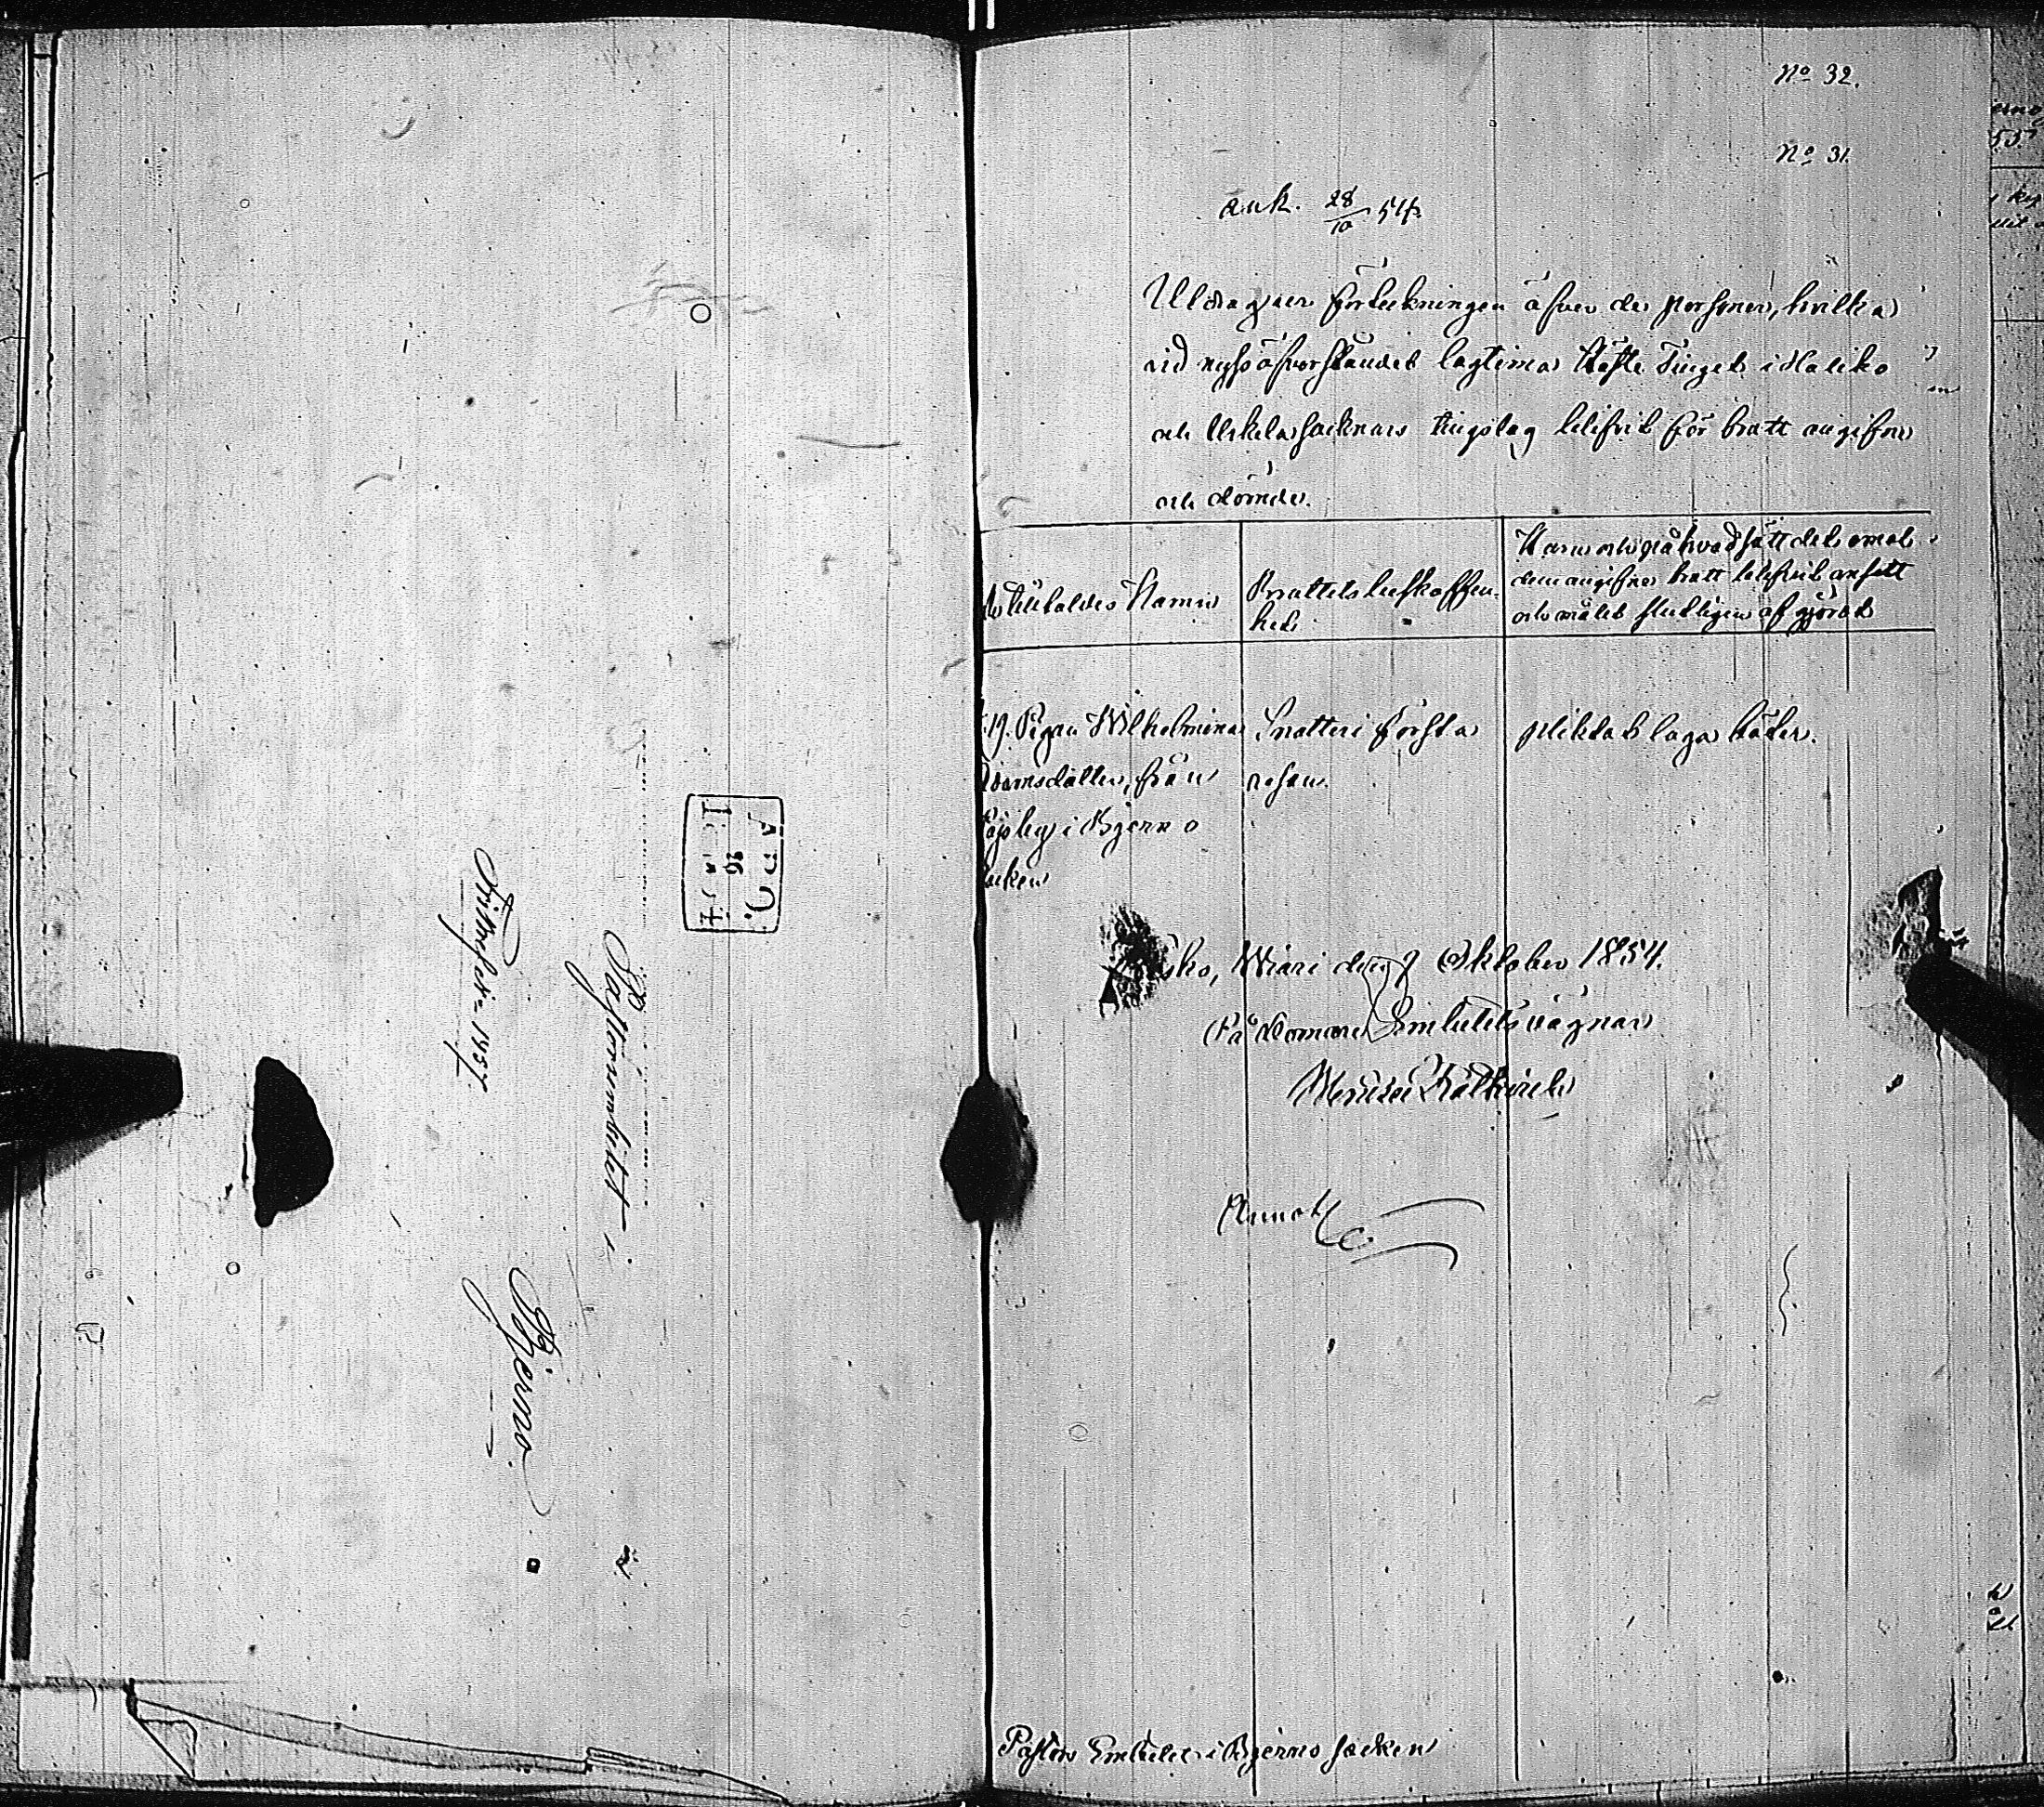 Fribref Lit. 1854.
Pastorsembetet
i
Bjerno
ÅBO.
26
No 32.
No 31.
ank. 28/10 54.
Utdrag ur förteckningen öfver de personer, hvilka
vid nyss öfverståndet lagtima Höste Tinget i Haliko
och Uskela socknars tingslag blifvit för brott angifne
och dömde.
Tilltaldes Namn
Brottets beskaffen-
het.
Namn och på hvad sätt det emot
dem angifna brott blifvit ansedt
och målet slutligen afgjordt
19. Pigan Wilhelmina
damsdotter, från
by i Bjerno
ocken
Snatteri första
resan.
pliktat laga böter.
Wiari den 9 Oktober 1854.
På Domare Embetets vägnar
Pastors Embetet i Bjerno socken